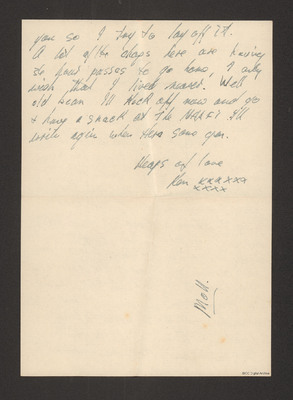 you so I try to lay off it.
A lot of the chaps here are having
to passes to go home, I only
wish that I lived nearer. Well
old bean I'll kick off now and go
& have a snack at the NAAFI I'll
write again when some gen.
Heaps of love
Ken xxxxxx
xxxx
Moll.